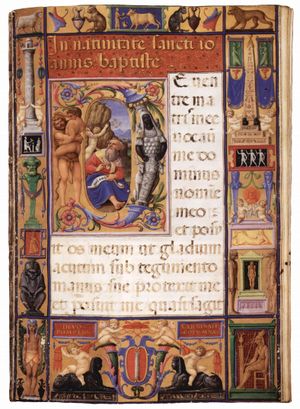 In nativitate sancti io
annis baptiste
E ven
tre ma
tris mee
vocavit
me do
minus
nomine
meo:
et posu
it os meum ut gladium
acutum sub tegumento
manus sue protexit me
et posuit me quasi sagit
DIVO
POMPEIO
CARDINALI
COLVMNAE